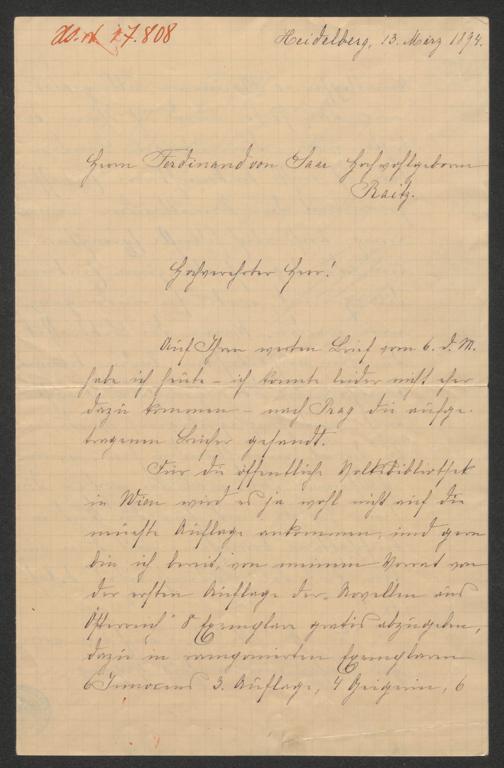 Heidelberg, 13. März 1894.
Herrn Ferdinand von Saar Hochwohlgeboren
Raitz.
Hochverehrter Herr!
Auf Ihren werten Brief vom 6. d. M.
habe ich heute – ich konnte leider nicht eher
dazu kommen – nach Prag die aufge-
tragenen Bücher gesandt.
Für die öffentliche Volksbibliothek
in Wien wird es ja wohl nicht auf die
neueste Auflage ankommen, und gern
bin ich bereit, von meinem Vorrat von
der ersten Auflage der „Novellen aus
Österreich" 8 Exemplare gratis abzugeben,
dazu in ramponirten Exemplaren
6 Innocens 3. Auflage, 4 Geigerin, 6